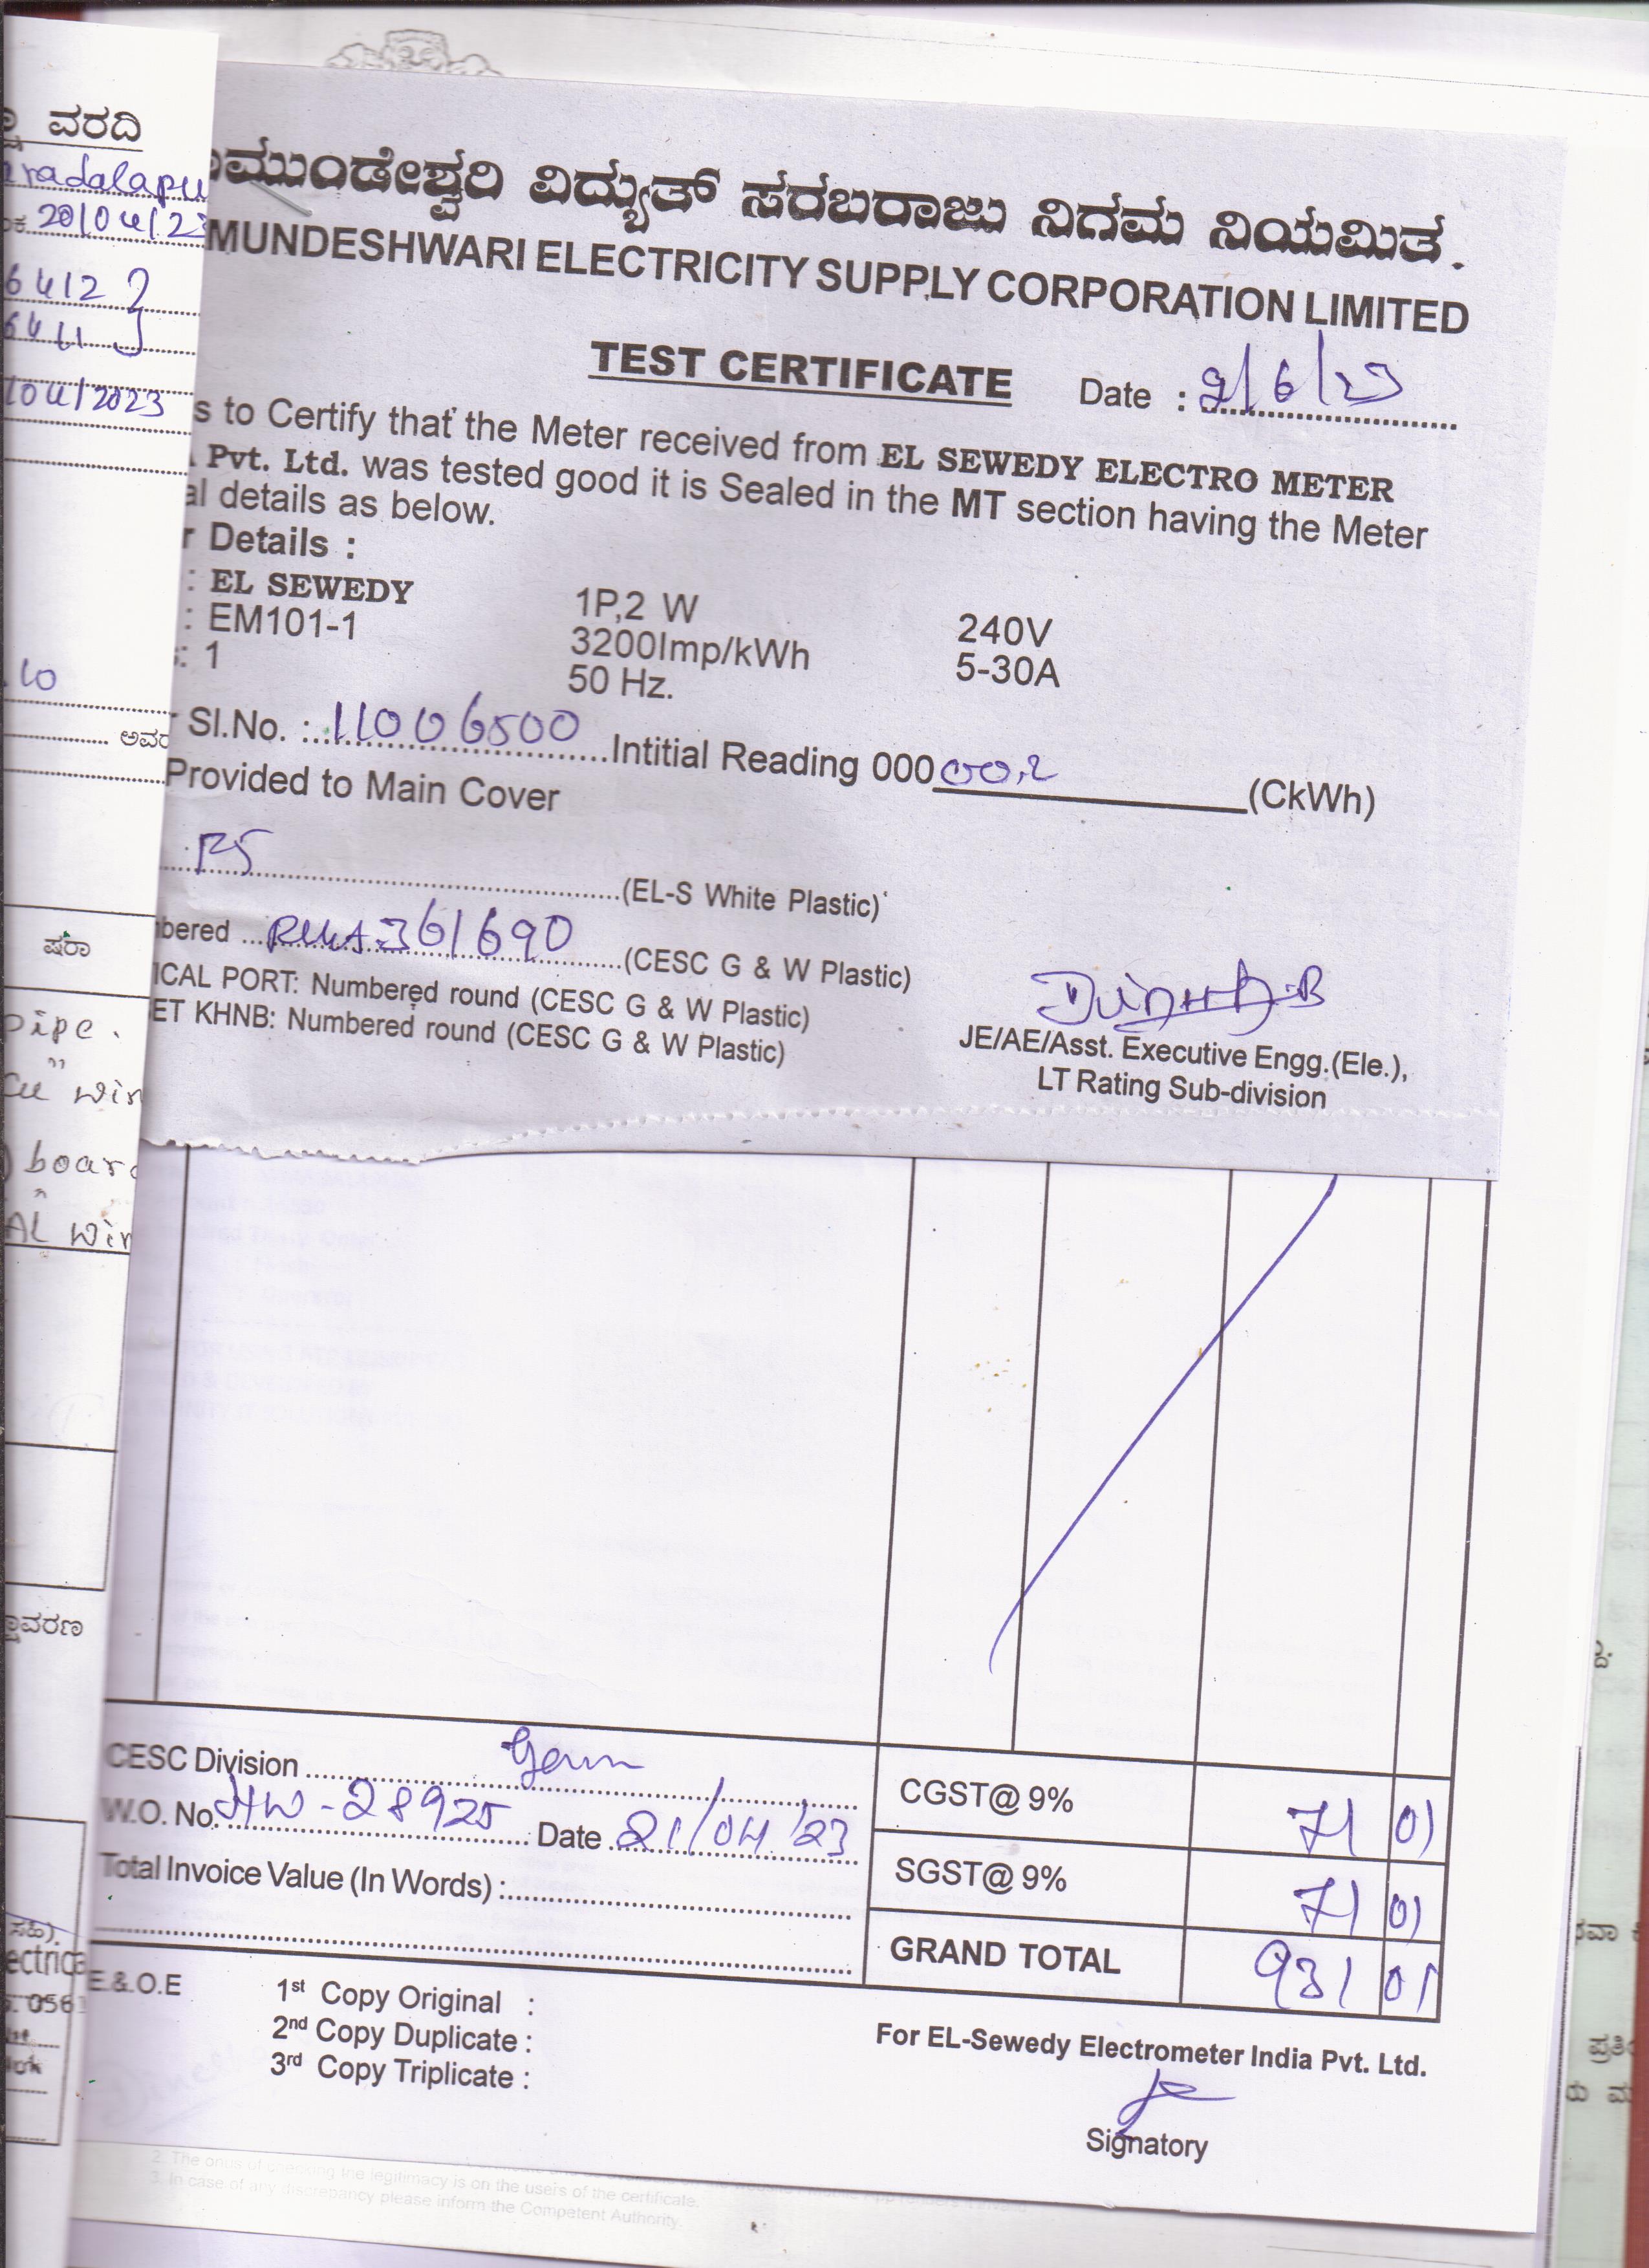 ವರದಿ
20/04/23
6412
6411
/04/2023
10
ಷರಾ
pipe.
"
board
AL wir
ಮುಂಡೇಶ್ವರಿ ವಿದ್ಯುತ್ ಸರಬರಾಜು ನಿಗಮ ನಿಯಮಿತ.
MUNDESHWARI ELECTRICITY SUPPLY CORPORATION LIMITED
TEST CERTIFICATE Date : 9/6/23
s to Certify that the Meter received from EL SEWEDY ELECTRO METER
Pvt. Ltd. was tested good it is Sealed in the MT section having the Meter
al details as below.
r Details :
: EL SEWEDY 1P,2 W 240V
: EM101-1 3200Imp/kWh 5-30A
: 1 50 Hz.
Sl.No. : 11006500 Intitial Reading 000 00.2 (CkWh)
Provided to Main Cover
(EL-S White Plastic)
bered 361690 (CESC G & W Plastic)
ICAL PORT: Numbered round (CESC G & W Plastic)
ET KHNB: Numbered round (CESC G & W Plastic)
JE/AE/Asst. Executive Engg.(Ele.),
LT Rating Sub-division
CESC Division
W.O. No. HW-28925 Date 21/04/23
Total Invoice Value (In Words) :
CGST@ 9% 71 01
SGST@ 9% 71 01
GRAND TOTAL 931 01
E.& O.E
1st Copy Original :
2nd Copy Duplicate :
3rd Copy Triplicate :
For EL-Sewedy Electrometer India Pvt. Ltd.
Signatory
2. The onus of checking the legitimacy is on the users of the certificate.
3. In case of any discrepancy please inform the Competent Authority.